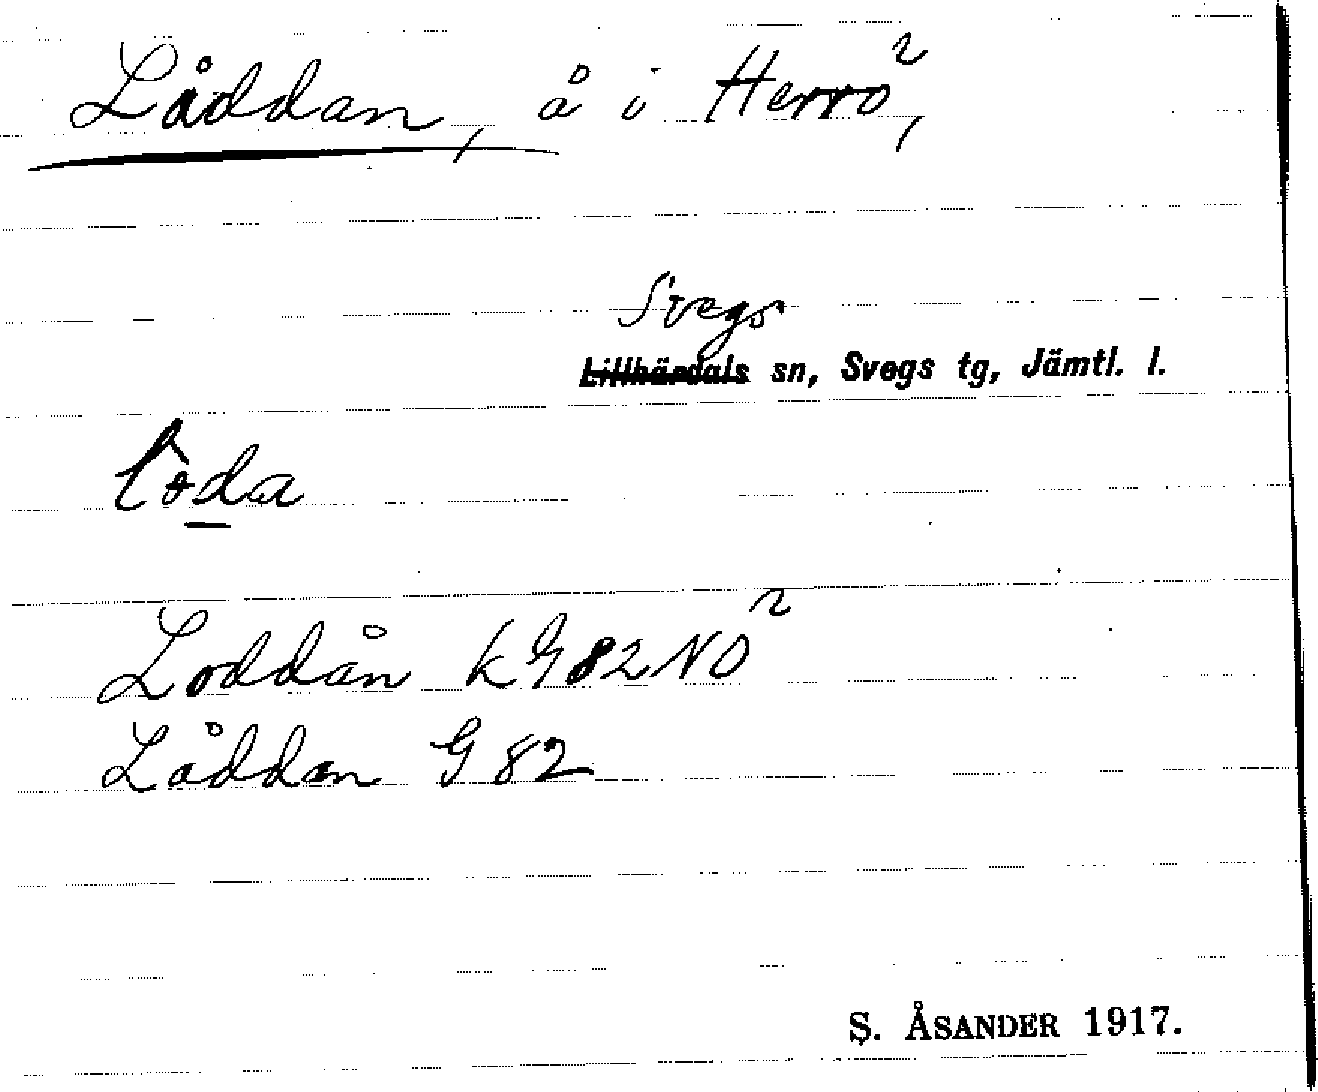 Låddan, å i Herrö,
Svegs
Lillhärdals sn, Svegs tg, Jämtl. l.
Loddån kG82NÖ
Låddan G 82
S. ÅSANDER 1917.